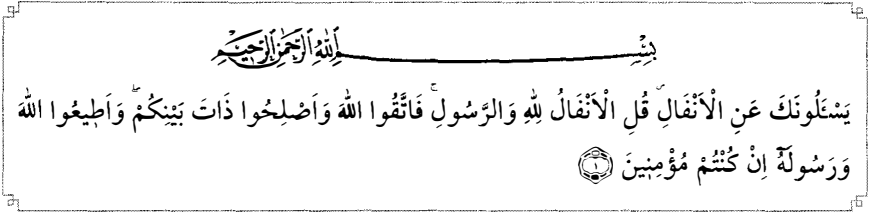 بِسْمِ اللهِ الرَّحْمٰنِ الرَّحِيمِ
يَسْـَٔلُونَكَ عَنِ الْاَنْفَالِۜ قُلِ الْاَنْفَالُ لِلّٰهِ وَالرَّسُولِۚ فَاتَّقُوا اللهَ وَاَصْلِحُوا ذَاتَ بَيْنِكُمْۖ وَاَط۪يعُوا اللهَ
وَرَسُولَهُٓ اِنْ كُنْتُمْ مُؤْمِن۪ينَ ﴿١﴾